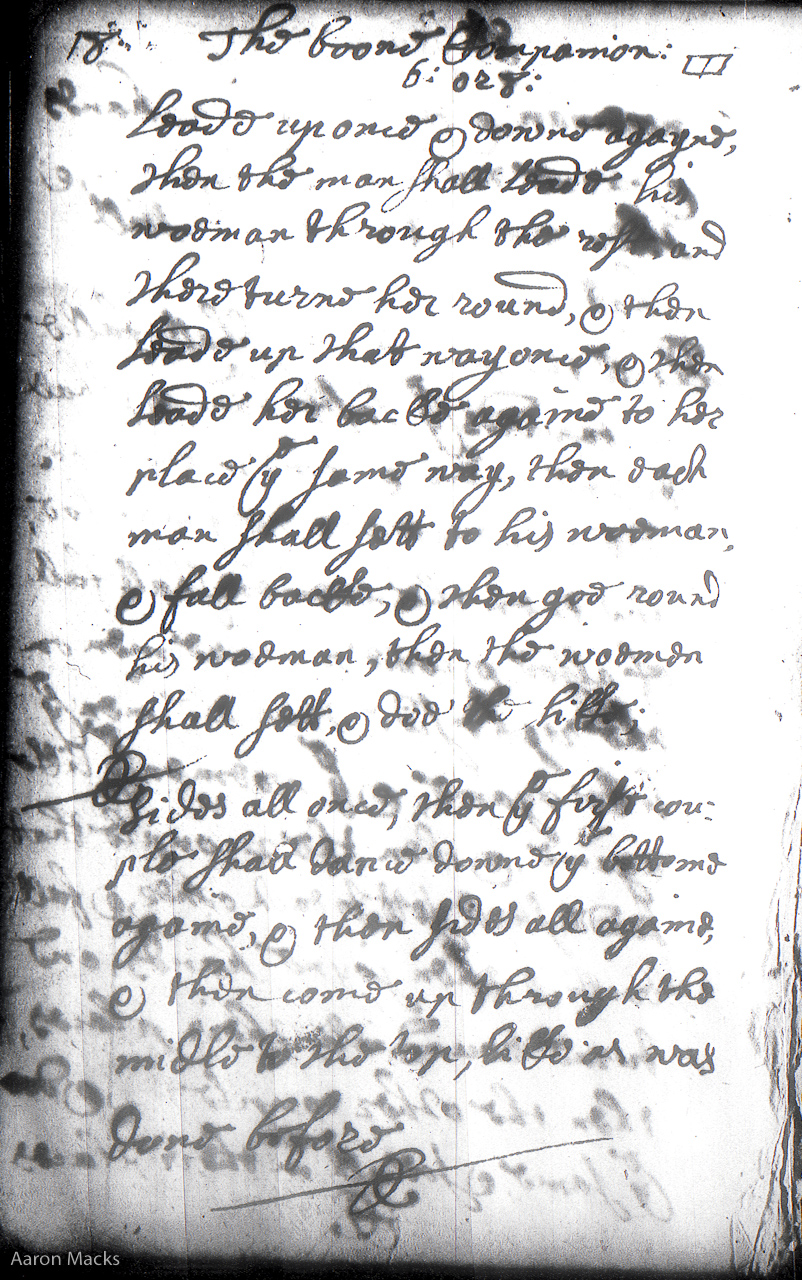 18: The boone Companion:
6: or 8:
Leade up once & downe agayne,
then the man shall leade his
woeman through the rest, and
there turne her round, & then
leade up that way once, & then
leade her backe againe to her
place ye same way, then each
man shall sett to his woeman,
& fall backe, & then goe round
his woeman, then the woemen
shall sett, & doe the like;
Sides all once, then ye first cou-
ple shall dance downe ye bottome
againe, & then sides all againe,
& then come up through the
midle to the top, like as was
done before
Aaron Macks